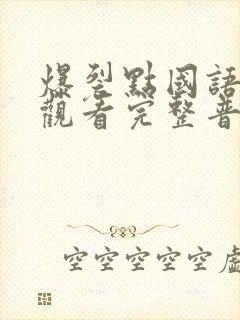 爆裂點國語
觀看完整普
空空空空空虛